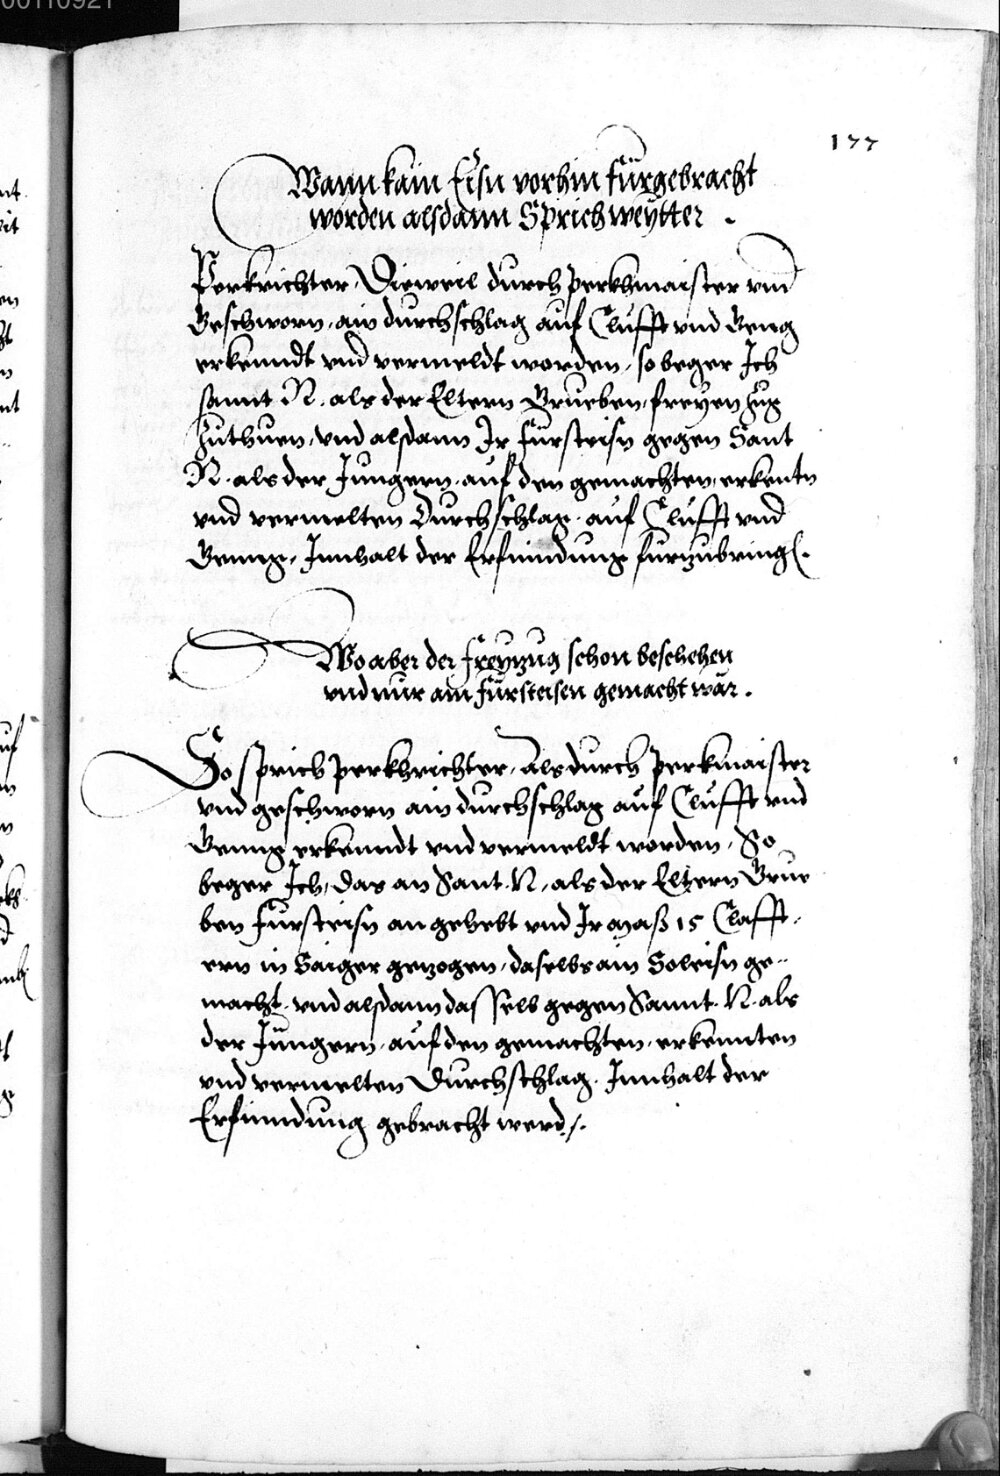 177
Wann kain Eisn vorhin fürgebracht
worden alsdann Sprich weytter .
Perkrichter, Dieweil durch perkhmaister vnd
Geschworn, ain durchschlag auf Clufft vnd Geng
erkenndt vnd vermeldt worden, so beger Ich
sannt N. als der Eltern Grueben, freyen zug
zuthuen, vnd alsdann Ir fursteisn gegen Sant
N. als der Jungern, auf den gemachten, erkentn
vnd vermelten Durchschlag, auf Clufft vnd
Genng, Innhalt der Erfindung furzubring.
Wo aber der freyzug schon beschehen
vnd nur ain fürsteisen gemacht wär .
So sprich perkhrichter, als durch perkmaister
vnd geschworn ain durchschlag auf Clufft vnd
Genng erkenndt vnd vermeldt worden, So
beger Ich, das an Sant. N. als der Eltern Grue
ben fursteisn angehebt vnd Ir maß 15 Clafft,
ern in Saiger gezogen, daselbs ain Soleisn ge,,
macht. vnd alsdann dasselb gegen Sannt. N. als
der Jüngern, auf den gemachten, erkennten
vnd vermelten Durchschlag. Innhalt der
Erfindung gebracht werd.